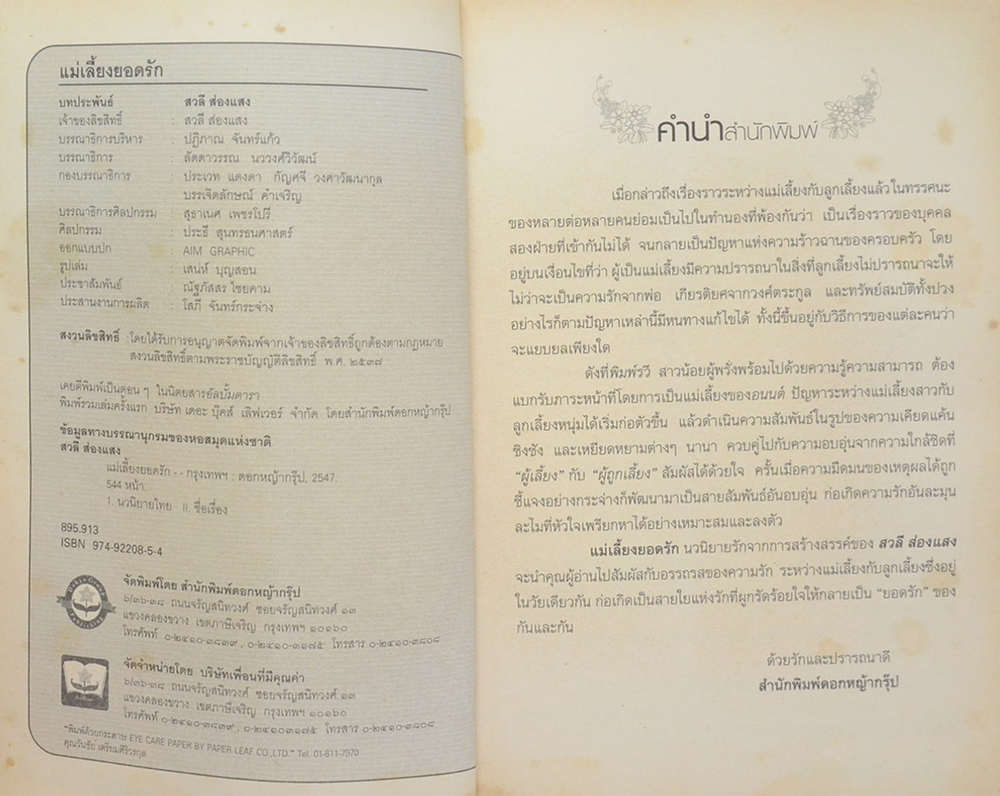 แม่เลี้ยงยอดรัก
บทประพันธ์ สวลี ส่องแสง
เจ้าของลิขสิทธิ์ : สวลี ส่องแสง
บรรณาธิการบริหาร : ปฏิภาณ จันทร์แก้ว
บรรณาธิการ : ลัดดาวรรณ นววงศ์วิวัฒน์
กองบรรณาธิการ : ประเวท แดงดา กัญศจี วงศาวัฒนากุล
บรรเจิดลักษณ์ คำเจริญ
บรรณาธิการศิลปกรรม : สุธาเนศ เพชรโปรี
ศิลปกรรม : ประธี สุนทรธนศาสตร์
ออกแบบปก : AIM GRAPHIC
รูปเล่ม : เสน่ห์ บุญสอน
ประชาสัมพันธ์ : ณัฐภัสสร ไชยคาม
ประสานงานการผลิต : โสภี จันทร์กระจ่าง
สงวนลิขสิทธิ์ : โดยได้รับการอนุญาตจัดพิมพ์จากเจ้าของลิขสิทธิ์ถูกต้องตามกฎหมาย
สงวนลิขสิทธิ์ตามพระราชบัญญัติลิขสิทธิ์ พ.ศ. ๒๕๓๗
เคยตีพิมพ์เป็นตอน ๆ ในนิตยสารอัลบั้มดารา
พิมพ์รวมเล่มครั้งแรก บริษัท เดอะ บุ๊คส์ เลิฟเวอร์ จำกัด โดยสำนักพิมพ์ดอกหญ้ากรุ๊ป
ข้อมูลทางบรรณานุกรมของหอสมุดแห่งชาติ
สวลี ส่องแสง
แม่เลี้ยงยอดรัก - - กรุงเทพฯ : ดอกหญ้ากรุ๊ป, 2547.
544 หน้า.
1. นวนิยายไทย II. ชื่อเรื่อง
895.913
ISBN 974-92208-5-4
จัดพิมพ์โดย สำนักพิมพ์ดอกหญ้ากรุ๊ป
๖/๓๖-๓๘ ถนนจรัญสนิทวงศ์ ซอยจรัญสนิทวงศ์ ๑๓
แขวงคลองขวาง เขตภาษีเจริญ กรุงเทพฯ ๑๐๑๖๐
โทรศัพท์ ๐-๒๔๑๐-๓๘๓๙ , ๐-๒๔๑๐-๓๑๗๕ โทรสาร ๐-๒๔๑๐-๓๘๐๘
จัดจำหน่ายโดย บริษัทเพื่อนที่มีคุณค่า
๖/๓๖-๓๘ ถนนจรัญสนิทวงศ์ ซอยจรัญสนิทวงศ์ ๑๓
แขวงคลองขวาง เขตภาษีเจริญ กรุงเทพฯ ๑๐๑๖๐
โทรศัพท์ ๐-๒๔๑๐-๓๘๓๙ , ๐-๒๔๑๐๓๑๗๕ โทรสาร ๐-๒๔๑๐-๓๘๐๘
"พิมพ์ด้วยกระดาษ EYE CARE PAPER BY PAPER LEAF CO.,LTD." Tel. 01-611-7970
คุณวันชัย เตรียมศิริวรกุล
คำนำสำนักพิมพ์
เมื่อกล่าวถึงเรื่องราวระหว่างแม่เลี้ยงกับลูกเลี้ยงแล้วในทรรศนะ
ของหลายต่อหลายคนย่อมเป็นไปในทำนองที่พ้องกันว่า เป็นเรื่องราวของบุคคล
สองฝ่ายที่เข้ากันไม่ได้ จนกลายเป็นปัญหาแห่งความร้าวฉานของครอบครัว โดย
อยู่บนเงื่อนไขที่ว่า ผู้เป็นแม่เลี้ยงมีความปรารถนาในสิ่งที่ลูกเลี้ยงไม่ปรารถนาจะให้
ไม่ว่าจะเป็นความรักจากพ่อ เกียรติยศจากวงศ์ตระกูล และทรัพย์สมบัติทั้งปวง
อย่างไรก็ตามปัญหาเหล่านี้มีหนทางแก้ไขได้ ทั้งนี้ขึ้นอยู่กับวิธีการของแต่ละคนว่า
จะแยบยลเพียงใด
ดังที่พิมพ์รวี สาวน้อยผู้พรั่งพร้อมไปด้วยความรู้ความสามารถ ต้อง
แบกรับภาระหน้าที่โดยการเป็นแม่เลี้ยงของอนนต์ ปัญหาระหว่างแม่เลี้ยงสาวกับ
ลูกเลี้ยงหนุ่มได้เริ่มก่อตัวขึ้น แล้วดำเนินความสัมพันธ์ในรูปของความเคียดแค้น
ชิงชัง และเหยียดหยามต่างๆ นานา ควบคู่ไปกับความอบอุ่นจากความใกล้ชิดที่
"ผู้เลี้ยง" กับ "ผู้ถูกเลี้ยง" สัมผัสได้ด้วยใจ ครั้นเมื่อความมืดมนของเหตุผลได้ถูก
ชี้แจงอย่างกระจ่างก็พัฒนามาเป็นสายสัมพันธ์อันอบอุ่น ก่อเกิดความรักอันละมุน
ละไมที่หัวใจเพรียกหาได้อย่างเหมาะสมและลงตัว
แม่เลี้ยงยอดรัก นวนิยายรักจากการสร้างสรรค์ของ สวลี ส่องแสง
จะนำคุณผู้อ่านไปสัมผัสกับอรรถรสของความรัก ระหว่างแม่เลี้ยงกับลูกเลี้ยงซึ่งอยู่
ในวัยเดียวกัน ก่อเกิดเป็นสายใยแห่งรักที่ผูกรัดร้อยใจให้กลายเป็น "ยอดรัก" ของ
กันและกัน
ด้วยรักและปรารถนาดี
สำนักพิมพ์ดอกหญ้ากรุ๊ป